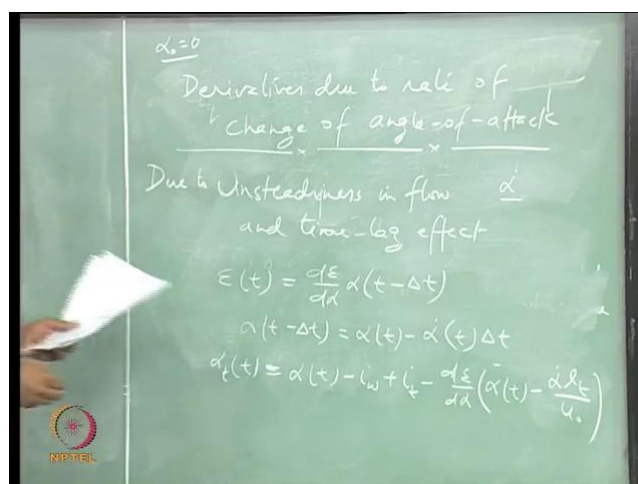 α₀=0
Derivatives due to rate of
change of angle-of-attack
Due to Unsteadyness in flow α̇
and time-lag effect
ε(t) = dε/dα α(t-Δt)
α(t-Δt) = α(t) - α̇(t)Δt
α_t(t) = α(t) - i_w + i_t - dε/dα (α(t) - α̇ l_t/u₀)
NPTEL